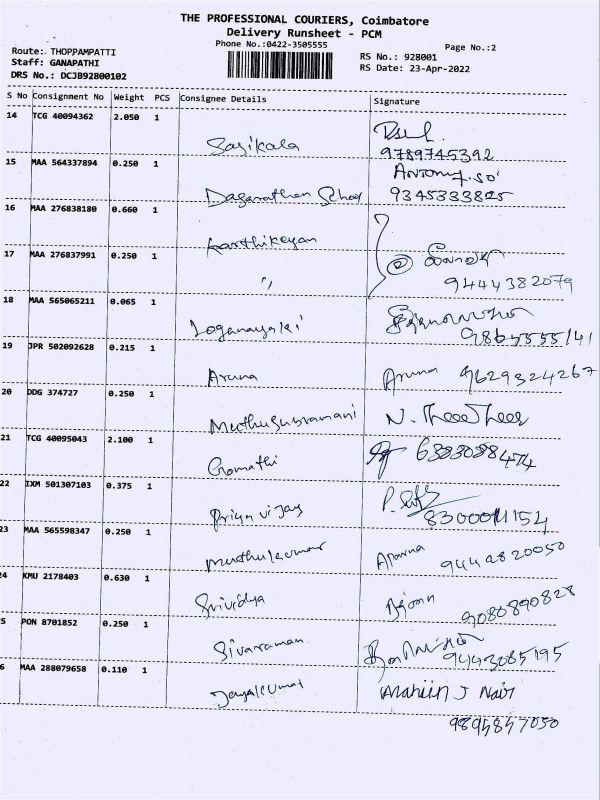 THE PROFESSIONAL COURIERS, Coimbatore
Delivery Runsheet - PCM
Phone No.:0422-3505555
Page No.:2
Route: THOPPAMPATTI
Staff: GANAPATHI
DRS No.: DCJB92800102
RS No.: 928001
RS Date: 23-Apr-2022
S No Consignment No Weight PCS Consignee Details Signature
14 TCG 40094362 2.050 1
Sasikala
9789745392
15 MAA 564337894 0.250 1
Dasarathan School
9345333825
16 MAA 276838180 0.660 1
Karthikeyan
17 MAA 276837991 0.250 1
"
9444382079
18 MAA 565065211 0.065 1
Loganayaki
19 JPR 502092628 0.215 1
Aruna Aruna 9629324267
20 DDG 374727 0.250 1
Muthusubramani N.
21 TCG 40095043 2.100 1
Gomathi
22 IXM 501307103 0.375 1
Priya vijay
23 MAA 565598347 0.250 1
Muthukumar Aparna 9442820050
24 KMU 2178403 0.630 1
Srividya 9080890828
5 PON 8701852 0.250 1
Sivaraman 9443085195
6 MAA 288079658 0.110 1
Jayakumar J Nair
9895857050